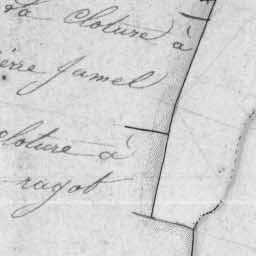 la cloture à
ierre Jamel
cloture à
ragot